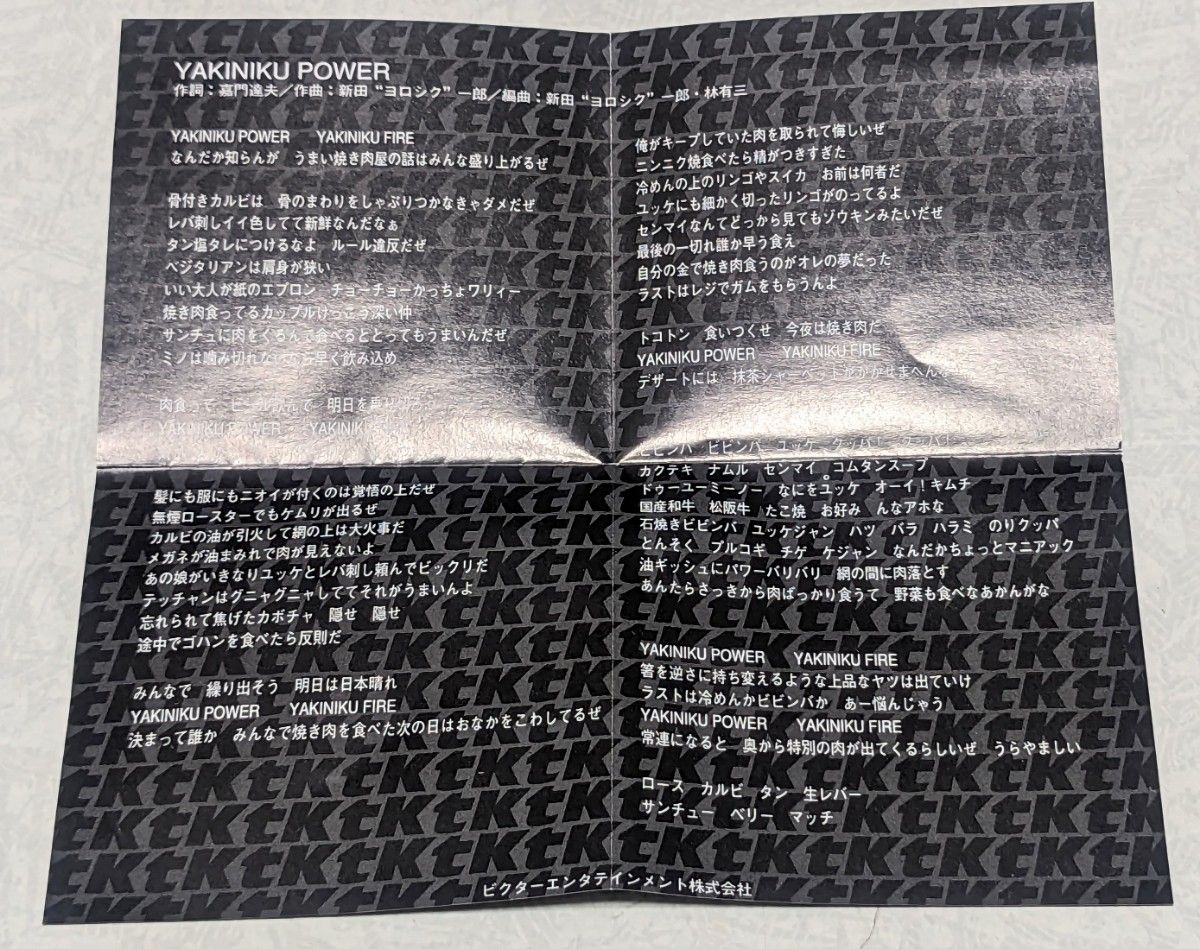 YAKINIKU POWER
作詞：嘉門達夫／作曲：新田“ヨロシク”一郎／編曲：新田“ヨロシク”一郎・林有三
YAKINIKU POWER　YAKINIKU FIRE
なんだか知らんが　うまい焼き肉屋の話はみんな盛り上がるぜ
骨付きカルビは　骨のまわりをしゃぶりつかなきゃダメだぜ
レバ刺しイイ色してて新鮮なんだなぁ
タン塩タレにつけるなよ　ルール違反だぜ
ベジタリアンは肩身が狭い
いい大人が紙のエプロン　チョーチョーかっちょワリィー
焼き肉食ってるカップルけっこう深い仲
サンチュに肉をくるんで食べるととってもうまいんだぜ
ミノは噛み切れないから早く飲み込め
肉食って　ビール飲んで　明日を
YAKINIKU POWER　YAKINIKU
髪にも服にもニオイが付くのは覚悟の上だぜ
無煙ロースターでもケムリが出るぜ
カルビの油が引火して網の上は大火事だ
メガネが油まみれで肉が見えないよ
あの娘がいきなりユッケとレバ刺し頼んでビックリだ
テッチャンはグニャグニャしててそれがうまいんよ
忘れられて焦げたカボチャ　隠せ　隠せ
途中でゴハンを食べたら反則だ
みんなで　繰り出そう　明日は日本晴れ
YAKINIKU POWER　YAKINIKU FIRE
決まって誰か　みんなで焼き肉を食べた次の日はおなかをこわしてるぜ
俺がキープしていた肉を取られて悔しいぜ
ニンニク焼食べたら精がつきすぎた
冷めんの上のリンゴやスイカ　お前は何者だ
ユッケにも細かく切ったリンゴがのってるよ
センマイなんてどっから見てもゾウキンみたいだぜ
最後の一切れ誰か早う食え
自分の金で焼き肉食うのがオレの夢だった
ラストはレジでガムをもらうんよ
トコトン　食いつくせ　今夜は焼き肉だ
YAKINIKU POWER　YAKINIKU FIRE
デザートには　抹茶シャーベットがかかせまへん
ビビンバ　ビビンバー　ユッケ　クッパ！　クッパ！
カクテキ　ナムル　センマイ　コムタンスープ
ドゥーユーミーノー　なにをユッケ　オーイ！キムチ
国産和牛　松阪牛　たこ焼　お好み　んなアホな
石焼きビビンバ　ユッケジャン　ハツ　バラ　ハラミ　のりクッパ
とんそく　プルコギ　チゲ　ケジャン　なんだかちょっとマニアック
油ギッシュにパワーバリバリ　網の間に肉落とす
あんたらさっきから肉ばっかり食うて　野菜も食べなあかんがな
YAKINIKU POWER　YAKINIKU FIRE
箸を逆さに持ち変えるような上品なヤツは出ていけ
ラストは冷めんかビビンバか　あー悩んじゃう
YAKINIKU POWER　YAKINIKU FIRE
常連になると　奥から特別の肉が出てくるらしいぜ　うらやましい
ロース　カルビ　タン　生レバー
サンチュー　ベリー　マッチ
ビクターエンタテインメント株式会社